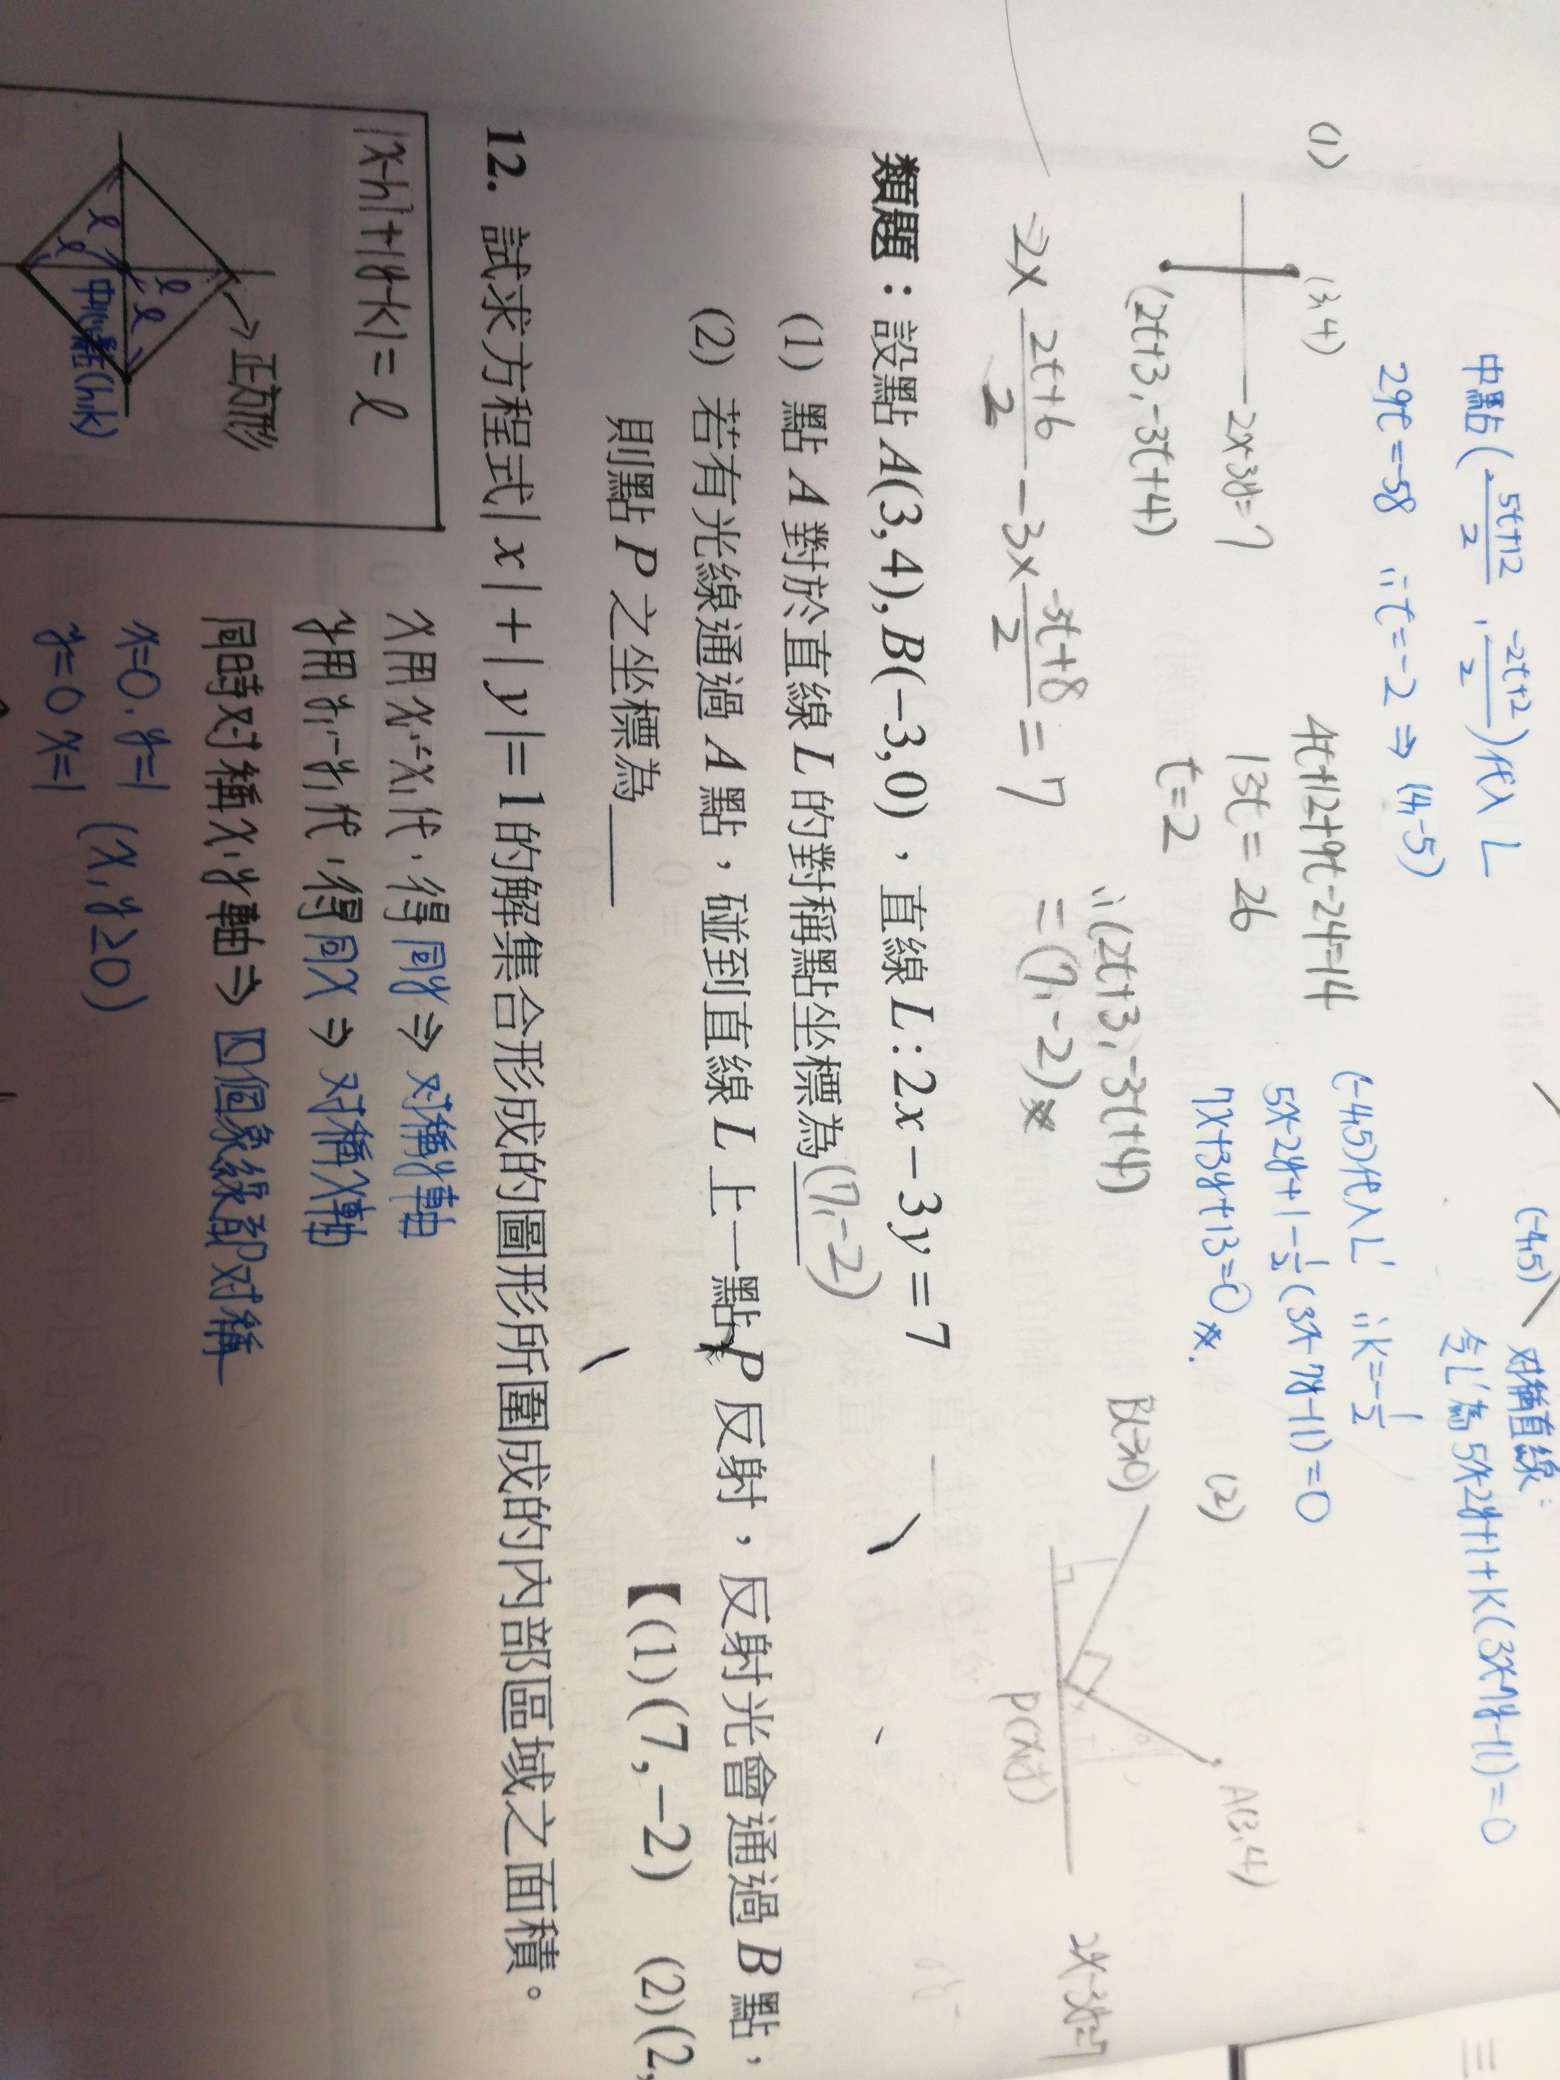 中點(5t+12/2, -2t+2/2)代入L
29t=-58 ∴t=-2 ⇒ (4,-5)
(-4,5)
对稱直線:
令L'為5x-2y+1+k(3x-7y-11)=0
(-4,5)代入L' ∴k=-1/2
5x-2y+1-1/2(3x-7y-11)=0
7x+3y+13=0※.
(1)
(3,4)
2x-3y=7
(2t+3,-3t+4)
2x 2t+6/2 -3x -3t+8/2 =7
4t+12+9t-24=14
13t=26
t=2
∴(2t+3,-3t+4)
=(7,-2)※
(2)
B(-3,0)
A(3,4)
P(x,y)
2x-3y=7
類題：設點A(3,4),B(−3,0)，直線L:2x−3y=7
(1) 點A對於直線L的對稱點坐標為(7,-2)
(2) 若有光線通過A點，碰到直線L上一點P反射，反射光會通過B點，
則點P之坐標為____
【(1)(7,−2) (2)(2,
12. 試求方程式|x|+|y|=1的解集合形成的圖形所圍成的內部區域之面積。
|x-h|+|y-k|=l
正方形
l
l
l
l
中心點(h,k)
x用x,-x代,得同y⇒对稱y軸
y用y,-y代,得同x⇒对稱x軸
同時对稱x,y軸⇒四個象線部对稱
x=0,y=1
y=0 x=1
(x,y≥0)